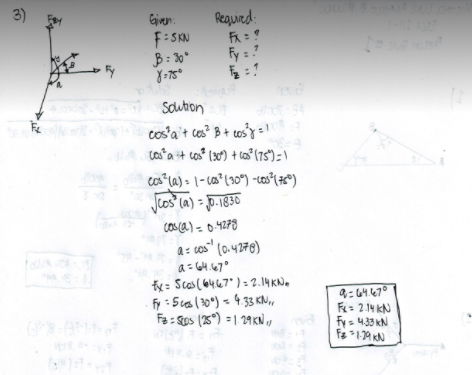 3)
Given: Required:
F = 5KN Fx = ?
β = 30° Fy = ?
γ = 75° Fz = ?
Fy
β
a
Fx
Solution
cos²a + cos²β + cos²γ = 1
cos²a + cos²(30°) + cos²(75°) = 1
cos²(a) = 1 - cos²(30°) - cos²(75°)
√cos²(a) = √0.1830
cos(a) = 0.4278
a = cos⁻¹(0.4278)
a = 64.67°
Fx = 5cos(64.67°) = 2.14KN,,
Fy = 5cos(30°) = 4.33KN,,
Fz = 5cos(75°) = 1.29KN,,
a = 64.67°
Fx = 2.14KN
Fy = 4.33KN
Fz = 1.29KN